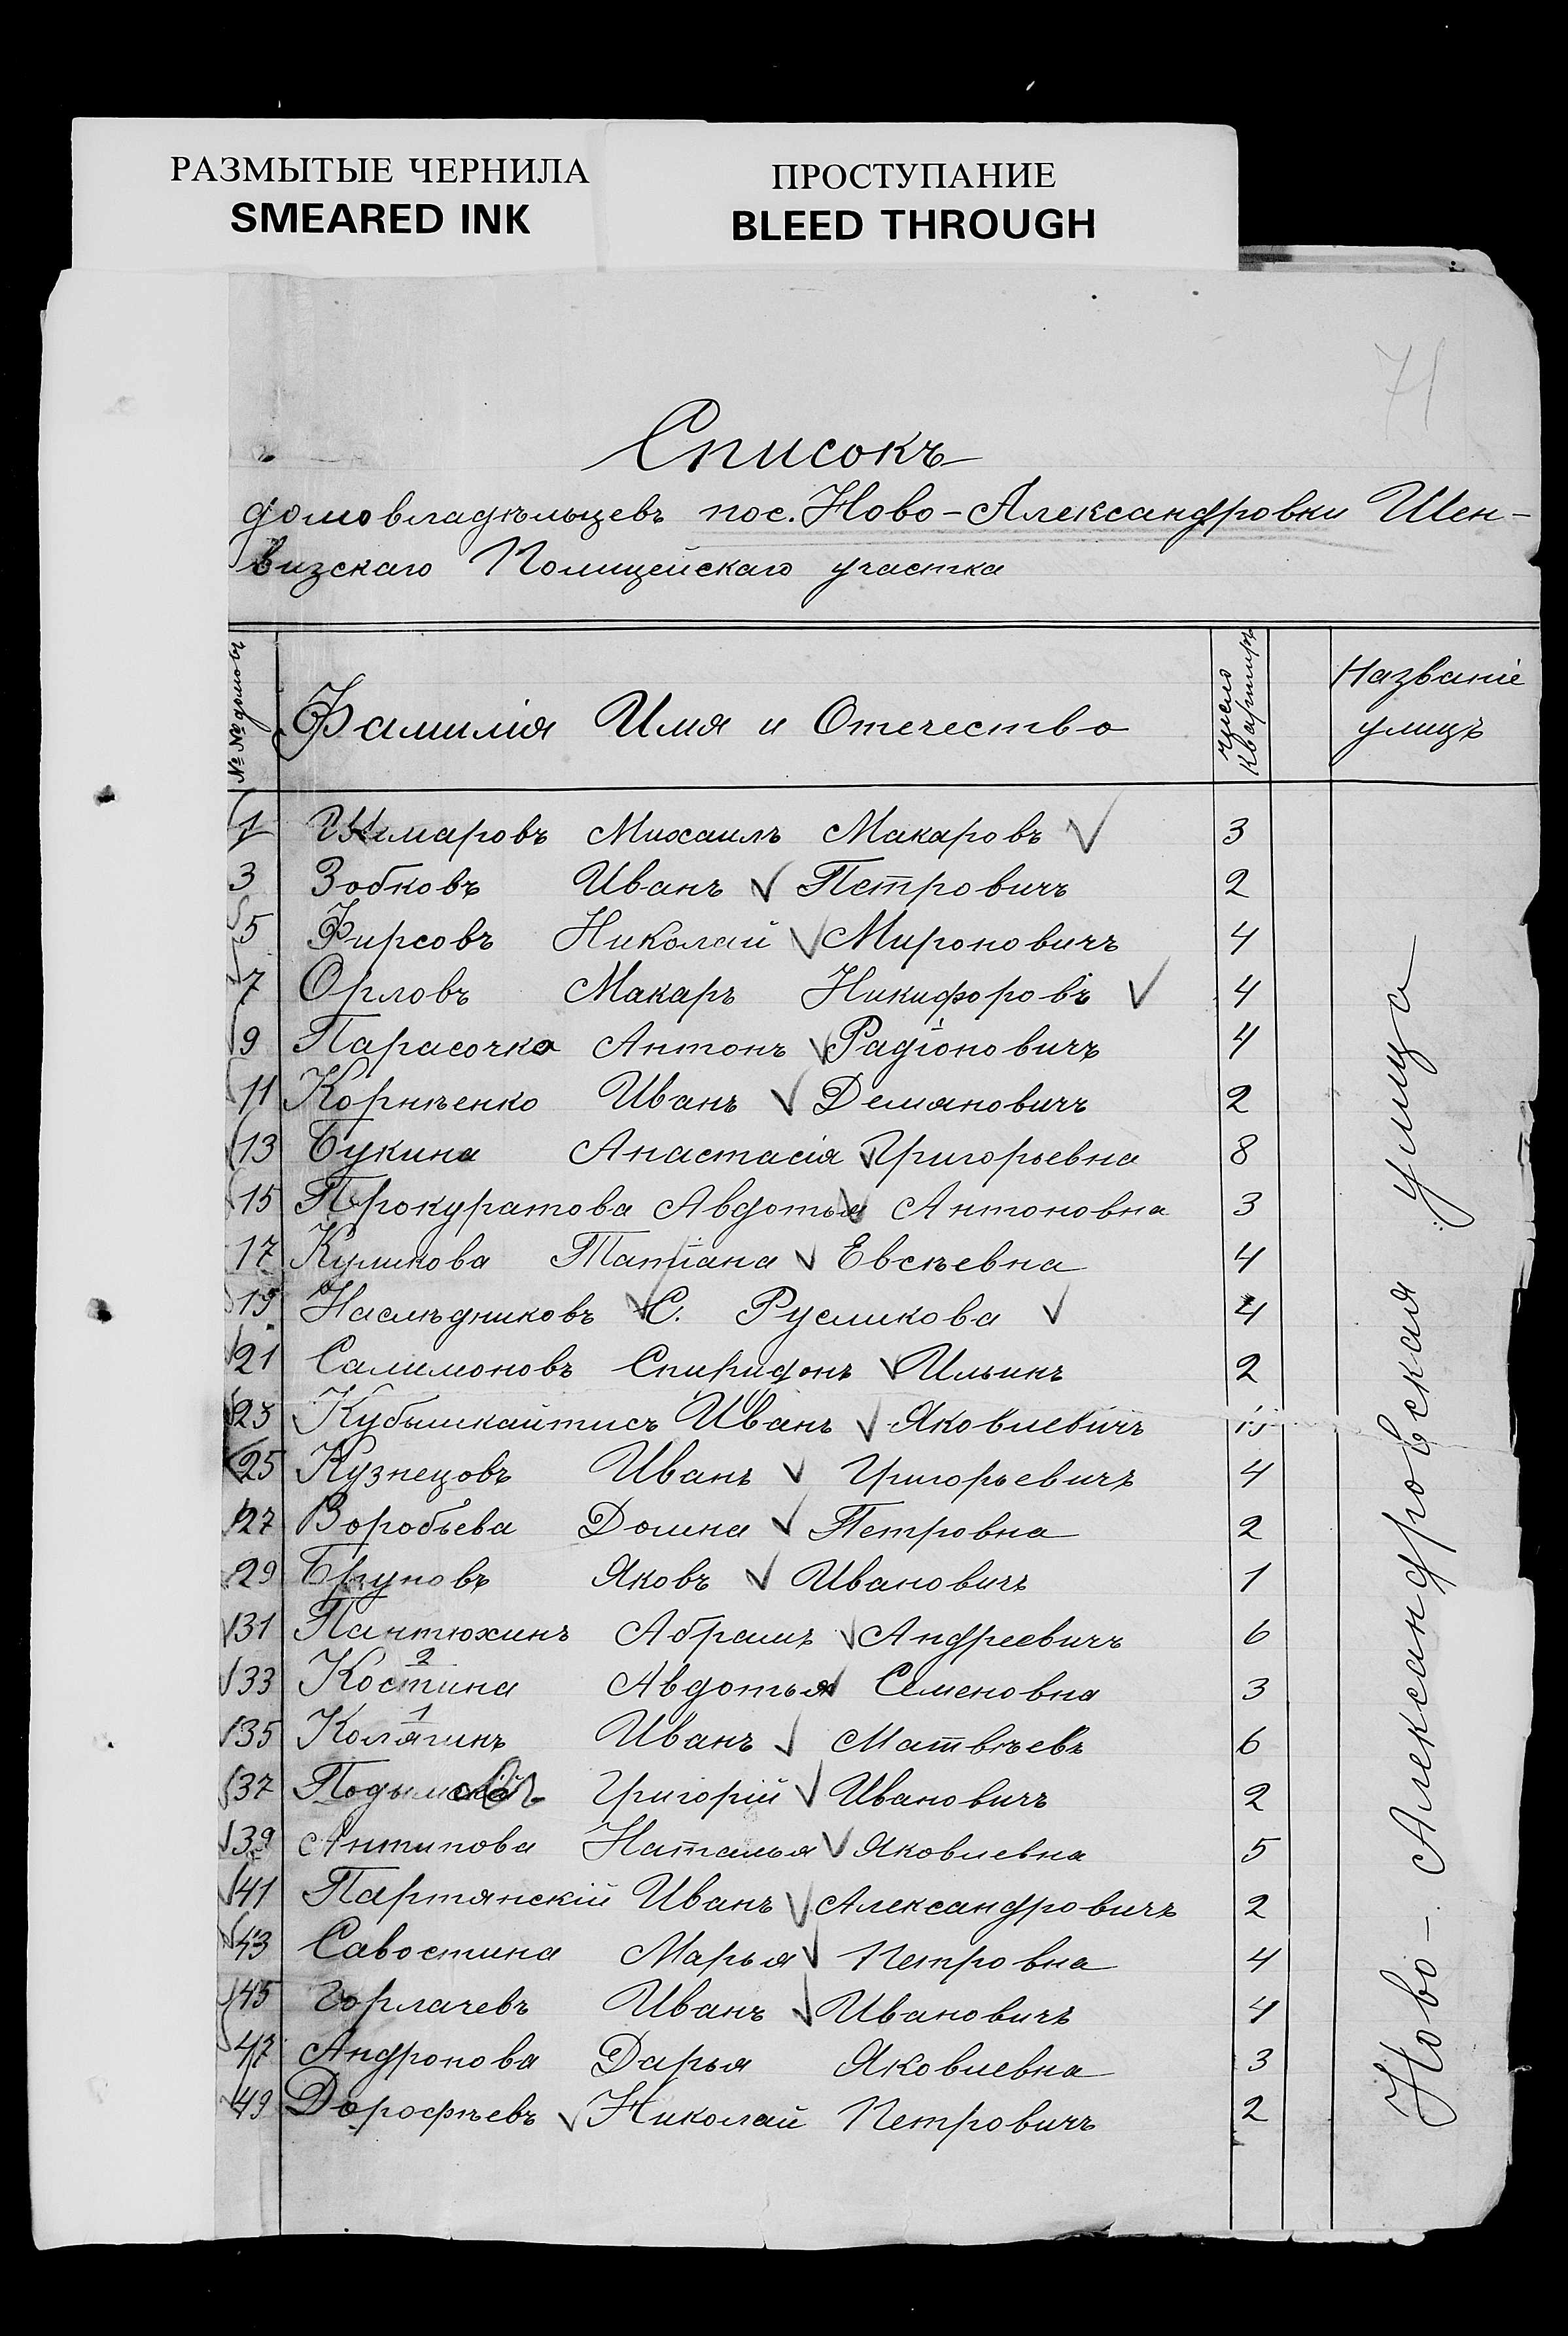 РАЗМЫТЫЕ ЧЕРНИЛА
SMEARED INK
ПРОСТУПАНИЕ
BLEED THROUGH
71
Списокъ
домовладѣльцевъ пос. Ново-Александровки Шен-
визскаго Полицейскаго участка
№№ домовъ Фамилія Имя и Отечество Число квартиръ Названіе улицъ
1 Михаилъ Макаровъ 3
3 Зобковъ Иванъ Петровичъ 2
5 Фирсовъ Николай Мироновичъ 4
7 Орловъ Макаръ Никифоровъ 4
9 Парасочко Антонъ Радіоновичъ 4
11 Корнѣенко Иванъ Демяновичъ 2
13 Букина Анастасія Григорьевна 8
15 Прокуратова Авдотья Антоновна 3
17 Куликова Татіана Евсѣевна 4
19 Наслѣдниковъ С. Русликова 4
21 Салимоновъ Спиридонъ Ильинъ 2
23 Кубылкайтисъ Иванъ Яковлевичъ
25 Кузнецовъ Иванъ Григорьевичъ 4
27 Воробьева Домна Петровна 2
29 Яковъ Ивановичъ 1
31 Пантюхинъ Абрамъ Андреевичъ 6
33 Костина 2 Авдотья Семеновна 3
35 Колягинъ 1 Иванъ Матвѣевъ 6
37 Григорій Ивановичъ 2
39 Антипова Наталья Яковлевна 5
41 Партянскій Иванъ Александровичъ 2
43 Савостина Марья Петровна 4
45 Горлачевъ Иванъ Ивановичъ 4
47 Андронова Дарья Яковлевна 3
49 Дорофѣевъ Николай Петровичъ 2
Ново-Александровская улица